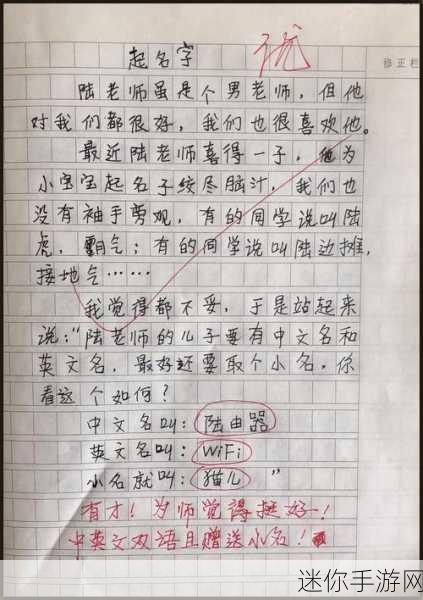 起名字
优
修正栏
陆老师虽是个男老师，但他
对我们都很好，我们也很喜欢他。
最近陆老师喜得一子，他为
小宝宝起名子绞尽脑汁，我们也
没有袖手旁观，有的同学说叫陆
虎，霸气；有的同学说叫陆边摊，
接地气……
我觉得都不妥，于是站起来
说："陆老师的儿子要有中文名和
英文名，最好还要取个小名，你
看这个如何？
中文名叫：陆由器
英文名叫：WiFi
小名就叫：猫儿"
有才！为师觉得挺好！
中英文双语且赠送小名！
迷你手游网